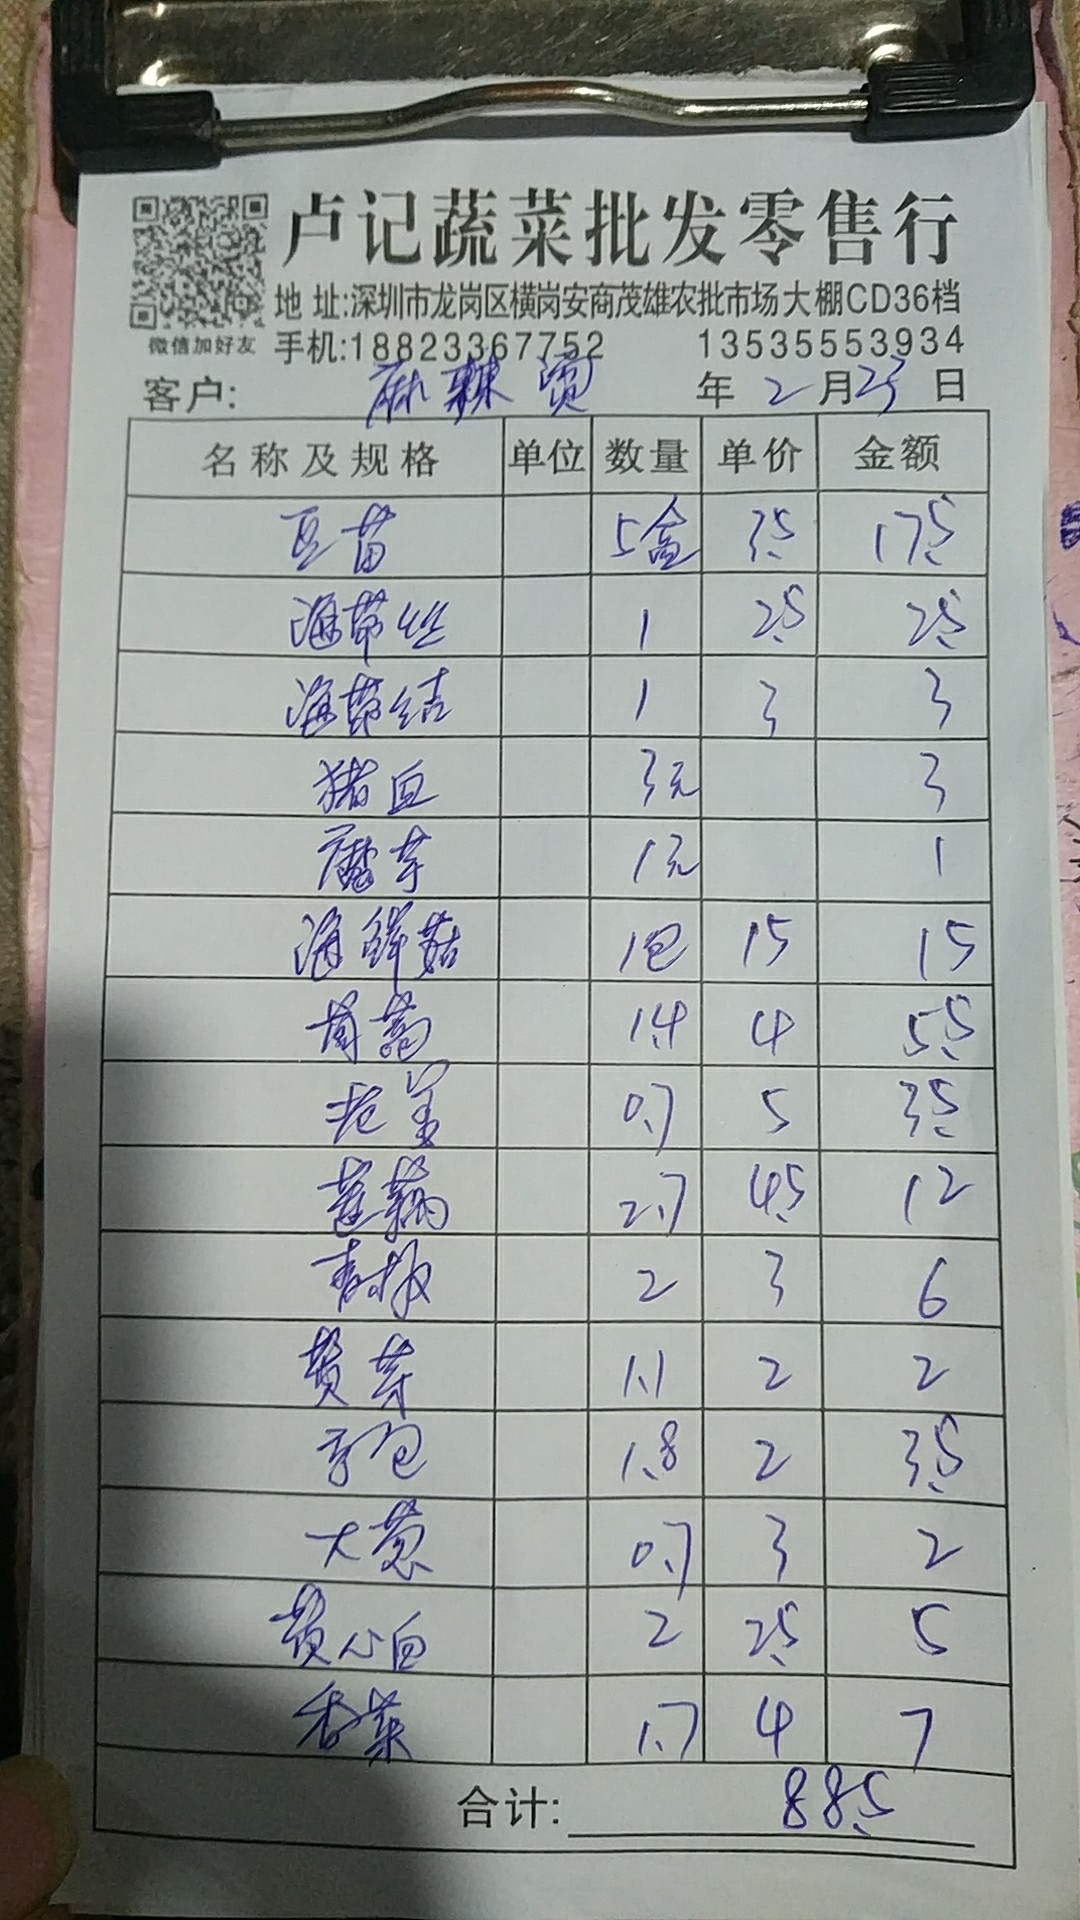 卢记蔬菜批发零售行
地 址:深圳市龙岗区横岗安商茂雄农批市场大棚CD36档
微信加好友 手机:18823367752 13535553934
客户: 麻辣烫 年 2 月 23 日
名称及规格 单位 数量 单价 金额
豆苗 5盒 3.5 17.5
海带丝 1 2.5 2.5
海带结 1 3 3
猪血 3元 3
魔芋 1元 1
海鲜菇 1包 15 15
茼蒿 1.4 4 5.5
老姜 0.7 5 3.5
莲藕 2.7 4.5 12
青椒 2 3 6
黄芽 1.1 2 2
1.8 2 3.5
大葱 0.7 3 2
黄心白 2 2.5 5
香菜 1.7 4 7
合计: 88.5